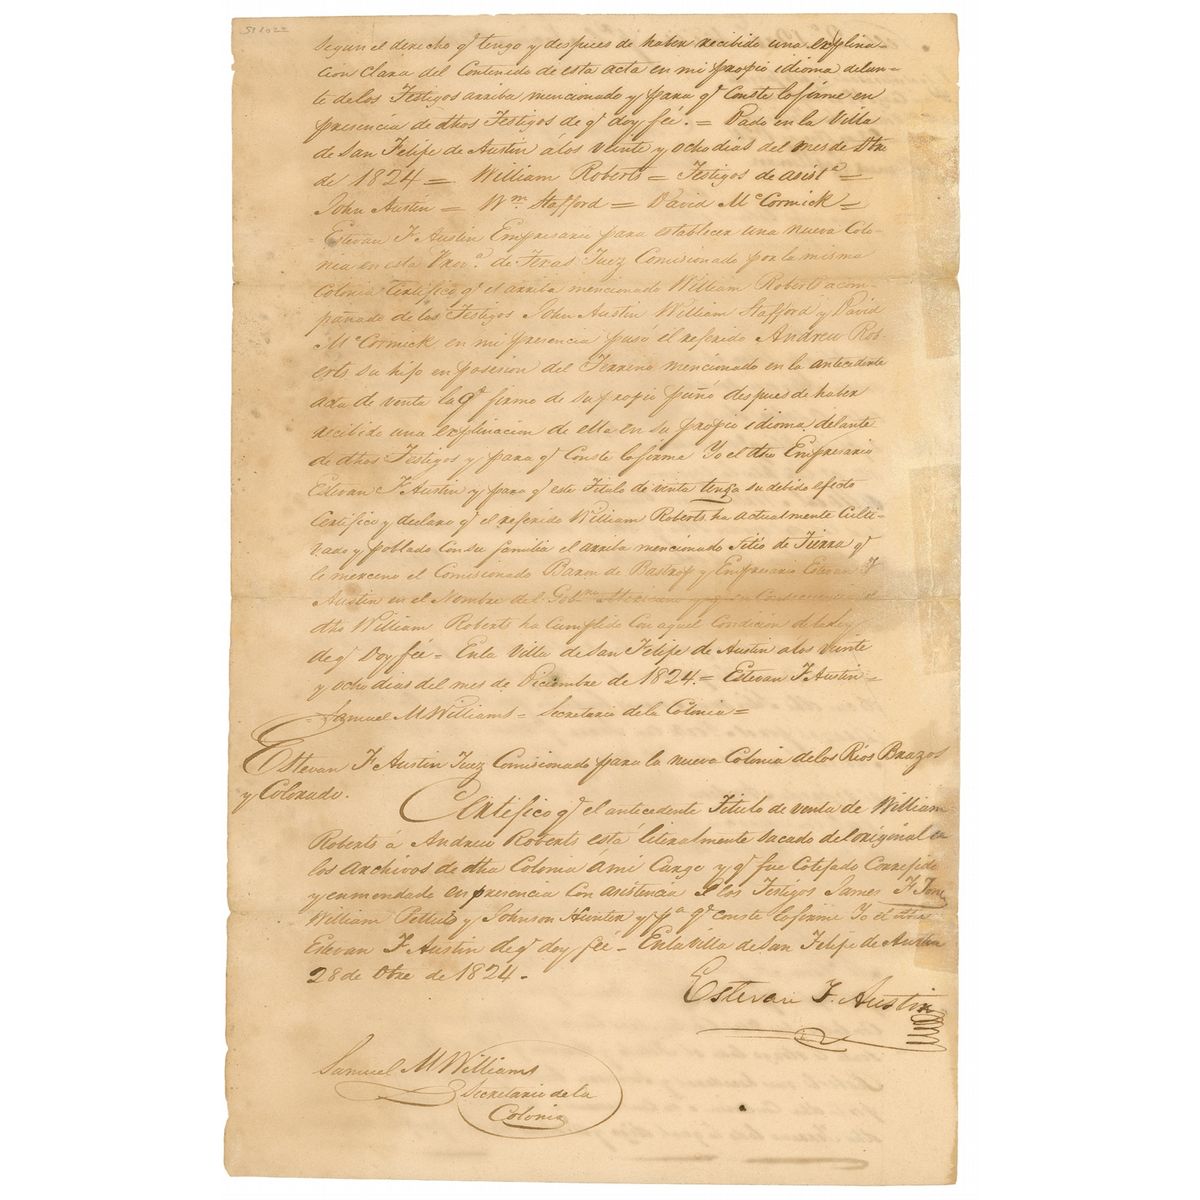 segun el derecho q.e tengo y despues de haber recibido una esplina-
cion clara del Contenido de esta acta en mi propio idioma delan-
te de los Testigos arriba mencionado y para q.e Conste lo firme en
presencia de dhos Testigos de q.e doy fée. = Dado en la Villa
de San Felipe de Austin á los veinte y ocho dias del mes de Dbre
de 1824 = William Roberts = Testigos de asist.a =
John Austin = W.m Stafford = David M.c Cormick =
= Estevan F. Austin Empresario para establecer una nueva Colo-
nia en esta Prov.a de Texas Juez Comisionado por la misma
Colonia Certifico q.e el arriba mencionado William Roberts acom-
pañado de los Testigos John Austin William Stafford y David
M.c Cormick en mi presencia pusó el referido Andrew Rob-
erts su hijo en posesion del Terreno mencionado en la antecedente
acta de venta la q.e firmo de su propio puño despues de haber
recibido una esplinacion de ella en su propio idioma delante
de dhos Testigos y para q.e Conste lo firme Yo el dho Empresario
Estevan F. Austin y para q.e este Titulo de venta tenga su debido efecto
Certifico y declaro q.e el referido William Roberts ha actualmente Culti-
vado y poblado Con su familia el arriba mencionado Sitio de Tierra q.e
le merceno el Comisionado Baron de Bastrop y Empresario Estevan F.
Austin en el Nombre del Gob.no Mexicano y q.e en Consecuencia el
dho William Roberts ha Cumplido Con aquel Condición de la Ley
de q.e Doy fée = En la Villa de San Felipe de Austin á los veinte
y ocho dias del mes de Diciembre de 1824. = Estevan F. Austin =
= Samuel M Williams = Secretario de la Colonia =
Estevan F Austin Juez Comisionado para la nueva Colonia de los Rios Brazos
y Colorado.
Certifico q.e el antecedente Titulo de venta de William
Roberts á Andrew Roberts está literalmente sacado del original en
los Archivos de dha Colonia á mi Cargo y q.e fue Cotejado Corregido
y enmendado en presencia Con asistencia de los Testigos James F.
William Pettus y Johnson Hunter y p.a q.e conste lo firme Yo el dho
Estevan F. Austin de q.e doy fée = En la Villa de San Felipe de Austin
28 de Dbre de 1824 -
Estevan F. Austin
Samuel M Williams
Secretario de la
Colonia